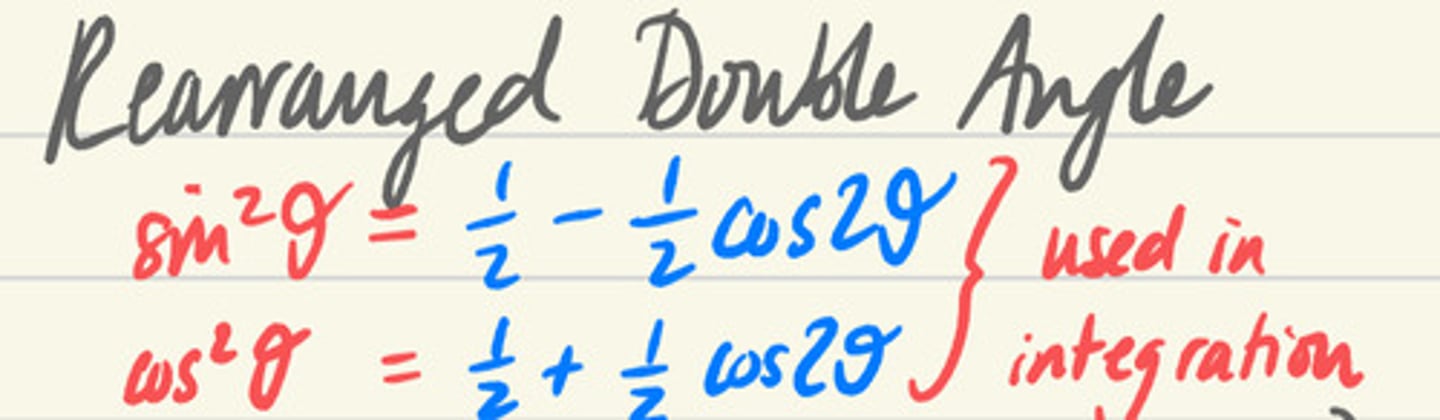 Rearranged Double Angle
sin²θ = 1/2 - 1/2 cos2θ } used in
cos²θ = 1/2 + 1/2 cos2θ integration